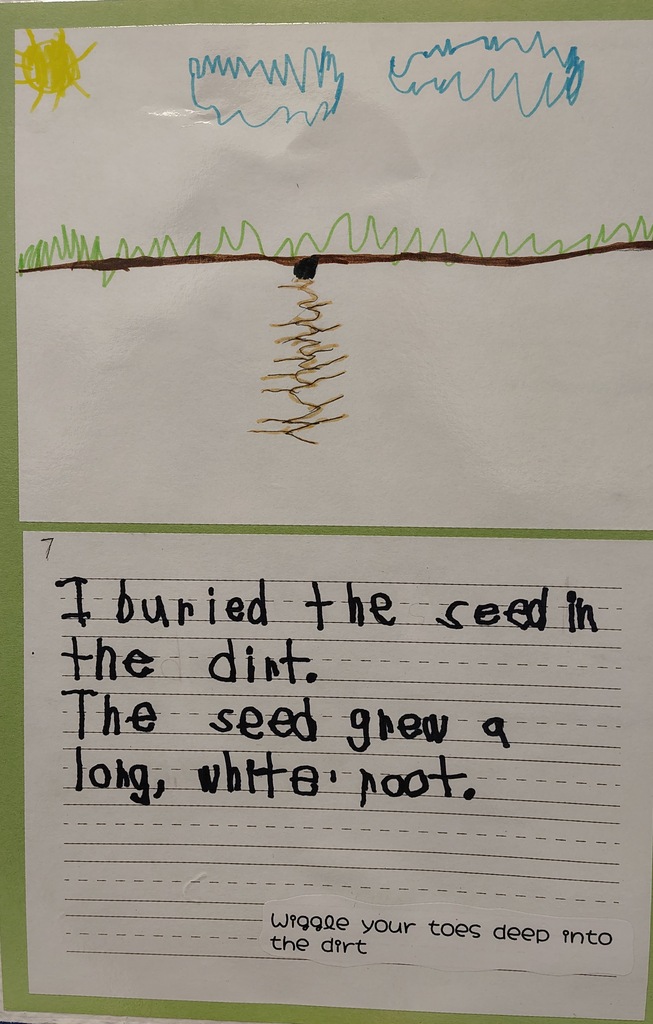 7
I buried the seed in
the dirt.
The seed grew a
long, white root.
Wiggle your toes deep into
the dirt